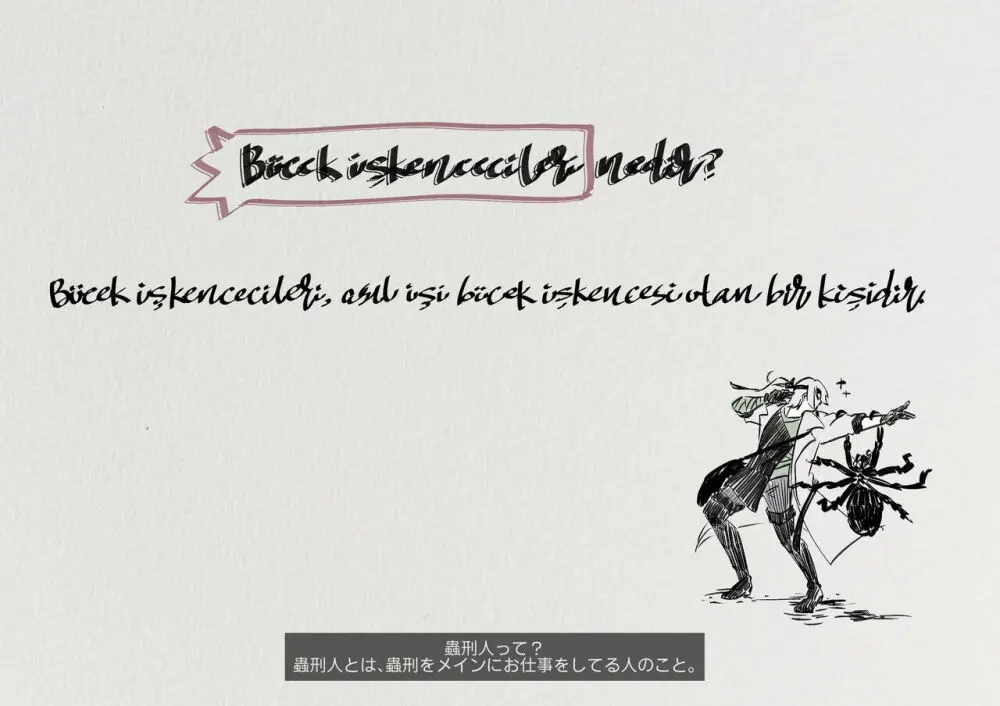 Böcek işkencecileri nedir?
Böcek işkencecileri, asıl işi böcek işkencesi olan bir kişidir.
蟲刑人って？
蟲刑人とは、蟲刑をメインにお仕事をしてる人のこと。